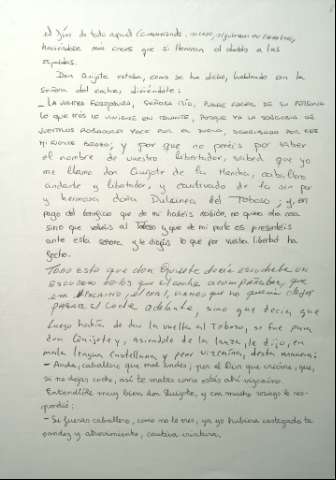 el fin de todo aquel comenzado suceso, siguieron su camino,
haciéndose más cruces que si llevaran al diablo a las
espaldas.
Don Quijote estaba, como se ha dicho, hablando con la
señora del coche, diciéndole:
- LA VUESTRA FERMOSURA, SEÑORA MÍA, PUEDE FACER DE SU PERSONA
LO QUE MÁS LE VINIERE EN TALANTE, PORQUE YA LA SOBERBIA DE
VUESTROS ROBADORES YACE POR EL SUELO, DERRIBADA POR ESTE
MI FUERTE BRAZO; y por que no penéis por saber
el nombre de vuestro libertador, sabed que yo
me llamo don Quijote de la Mancha, caballero
andante y libertador, y cautivado de la sin par
y hermosa doña Dulcinea del Toboso; y, en
pago del beneficio que de mí habéis recibido, no quiero otra cosa
sino que volváis al Toboso y que de mi parte os presentéis
ante esta señora y le digáis lo que por vuestra libertad he
fecho.
Todo esto que don Quijote decía escuchaba un
escudero de los que el coche acompañaban, que
era vizcaíno; el cual, viendo que no quería dejar
pasar el coche adelante, sino que decía que
luego había de dar la vuelta al Toboso, se fue para
don Quijote y, asiéndole de la lanza, le dijo, en
mala lengua castellana y peor vizcaína, desta manera:
- Anda, caballero que mal andes; por el Dios que crióme, que,
si no dejas coche, así te matas como estás ahí vizcaíno.
Entendióle muy bien don Quijote, y con mucho sosiego le res-
pondió:
- Si fueras caballero, como no lo eres, ya yo hubiera castigado tu
sandez y atrevimiento, cautiva criatura.